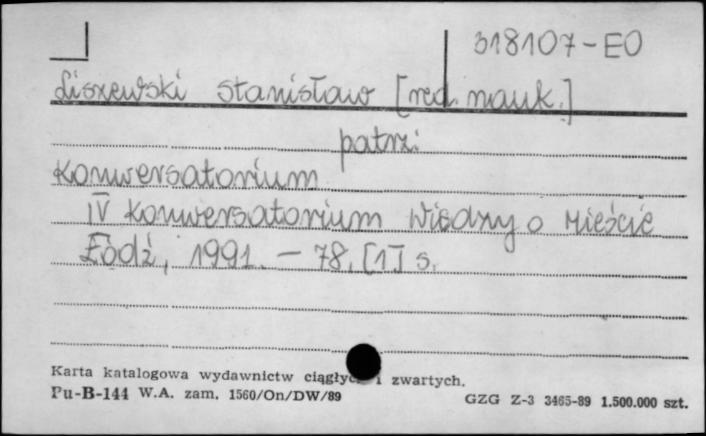 318107-EO
Liszewski Stanisław [red. nauk.]
patrz:
Konwersatorium
IV Konwersatorium Wiedzy o Mieście
Łódź, 1991. - 78, [1] s.
Karta katalogowa wydawnictw i zwartych.
Pu-B-144 W.A. zam. 1560/On/DW/89
GZG Z-3 3465-89 1.500.000 szt.